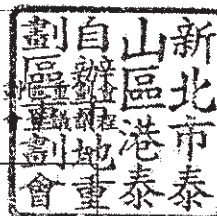 新北市泰
山區港泰
自辦市地重
劃區重劃會